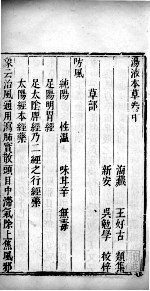 湯液本草卷中
海藏 王好古 類集
新安 吳勉學 校梓
草部
防風
純陽 性溫 味甘辛 無毒
足陽明胃經
足太陰脾經乃二經之行經藥
太陽經本經藥
象云治風通用瀉肺實散頭目中滯氣除上焦風邪